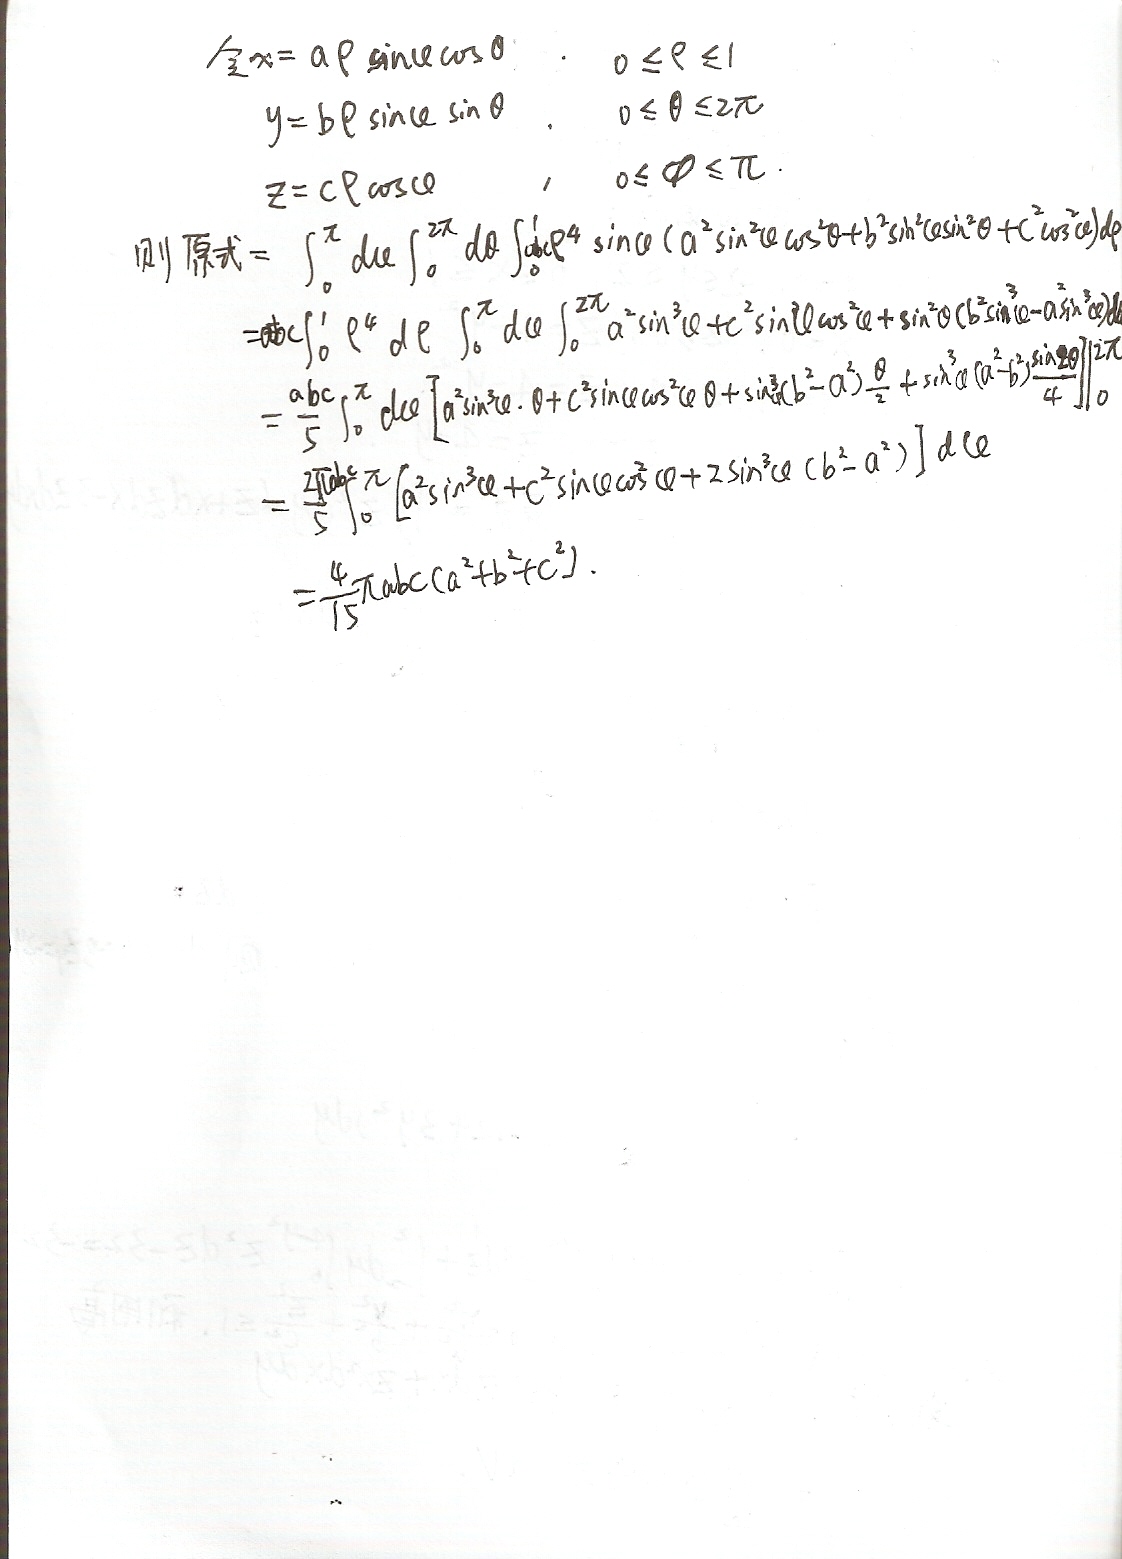 令x=aρsinφcosθ . 0≤ρ≤1
y=bρsinφ sinθ . 0≤θ≤2π
z=cρcosφ , 0≤Φ≤π.
则原式=∫₀^π dφ∫₀^2π dθ∫₀^1 abcρ⁴ sinφ(a²sin²φcos²θ+b²sin²φsin²θ+c²cos²φ)dρ
=abc∫₀^1 ρ⁴dρ ∫₀^π dφ∫₀^2π a²sin³φ+c²sinφcos²φ+sin²θ(b²sin³φ-a²sin³φ)dθ
=abc/5 ∫₀^π dφ[a²sin³φ·θ+c²sinφcos²φθ+sin³φ(b²-a²)θ/2+sin³φ(a²-b²)sin2θ/4]|₀^2π
=2πabc/5 ∫₀^π [a²sin³φ+c²sinφcos²φ+2sin³φ(b²-a²)]dφ
=4/15 πabc(a²+b²+c²).